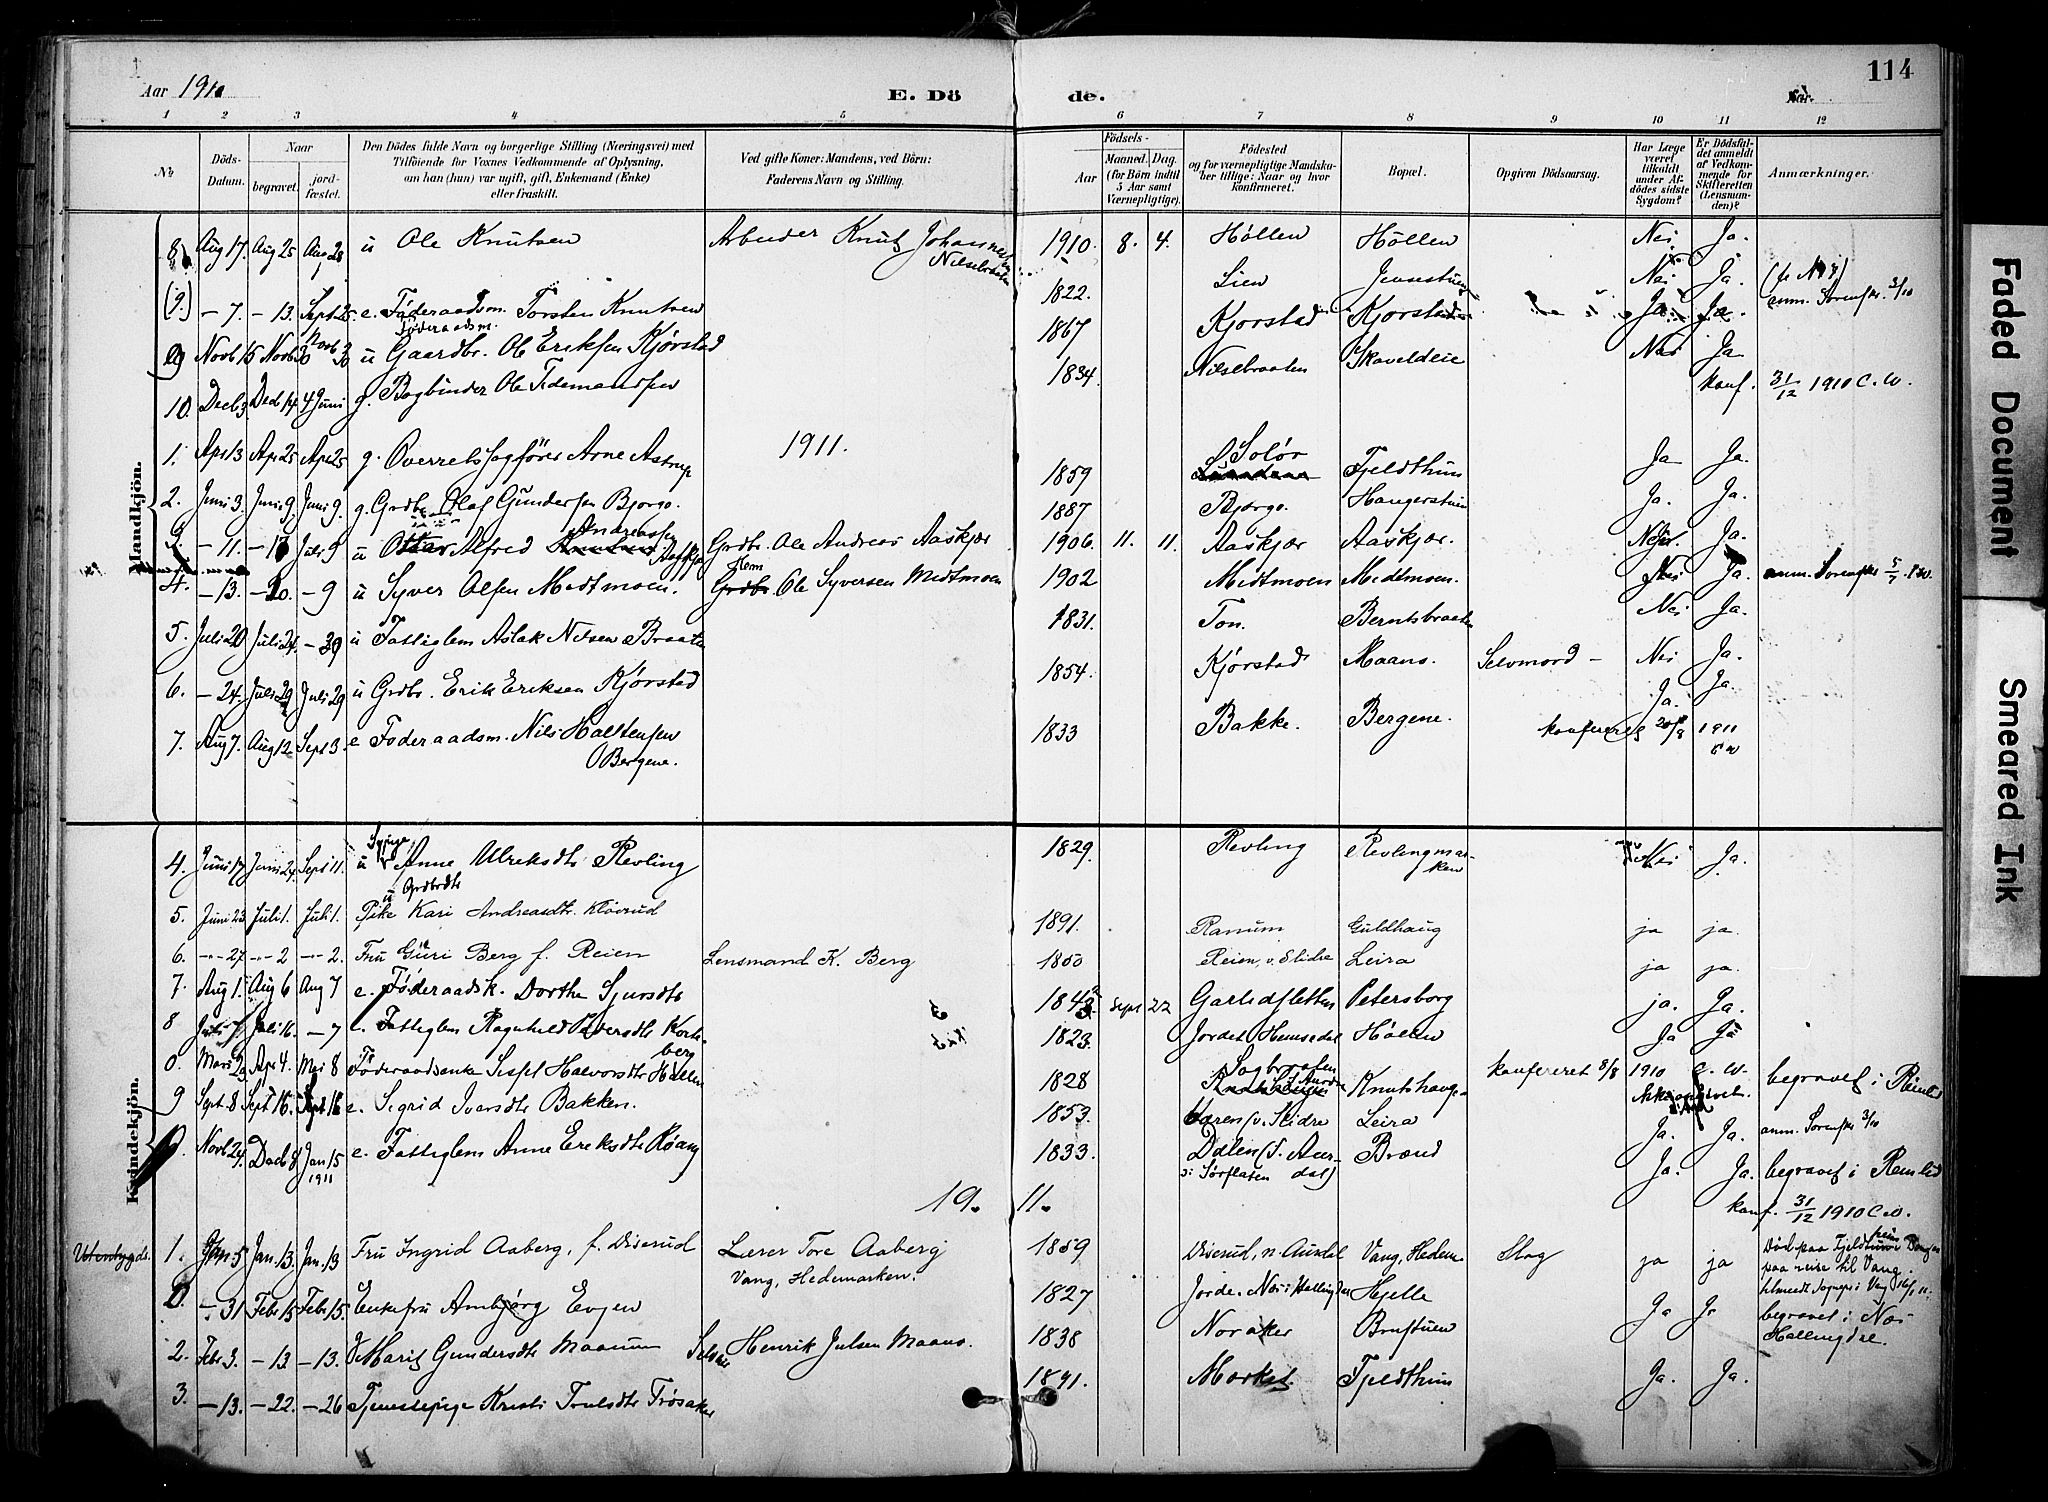 114
Aar 1910
E. Döde.
1 2 3 4 5 6 7 8 9 10 11 12
№
Döds-Datum.
Naar
begravet.
jordfæstet.
Den Dödes fulde Navn og borgerlige Stilling (Næringsvei) med
Tilföiende for Voxnes Vedkommende af Oplysning,
om han (hun) var ugift, gift, Enkemand (Enke)
eller fraskilt.
Ved gifte Koner: Mandens, ved Börn:
Faderens Navn og Stilling.
Födsels-
Aar
Maaned. Dag.
(for Börn indtil
5 Aar samt
Værnepligtige).
Födested
og for værnepligtige Mandska-
ber tillige: Naar og hvor
konfirmeret.
Bopæl.
Opgiven Dödsaarsag.
Har Læge
været
tilkaldt
under Af-
dödes sidste
Sygdom?
Er Dödsfal-
det anmeldt
af Vedkom-
mende for
Skifteretten
(Lensman-
den)?
Anmærkninger.
Mandkjön.
8 Aug 17. Aug 25 Aug 28 u Ole Knutsen Arbeider Knut Johannesen Nilsebraaten 1910. 8. 4. Höllen Höllen Nei Ja.
(9.) – 7. – 13. Sept 25. e. Föderaadsm. Torsten Knutsen 1822. Lien Jensestuen Nei Ja. anm. Sorenskr. 3/10
9 Novb 15 Novb 30 Novb 30 u Gaardbr. Ole Eriksen Kjörstad 1867 Kjorstad Kjorstad Ja Ja.
10. Decb 3. Decb 14 4 Juni g. Bogbinder Ole Tidemandsen 1834. Nilsebraaten Skaveldeie Nei Ja
konf. 31/12 1910 C. W.
1911.
1. Apr 13 Apr 25 Apr 25 g. Overretssagförer Arne Astrup 1859 Solör Fjeldthun Ja Ja.
2. Juni 3. Juni 9. Juni 9. g. Grdbr. Olaf Gundersen Bjorgo. 1887 Bjorgo. Haugerstuen Ja. Ja.
3. – 11. – 17 Juli 9 u Ottar Alfred Andreassen Aaskjær Grdbr. Ole Andreas Aaskjær 1906. 11. 11. Aaskjær Aaskjær. Nei. Ja.
4. – 13. – 20. – 9 u Syver Olsen Midtmoen. Grdbr. Ole Syversen Midtmoen 1902 Midtmoen Midtmoen. Nei Ja. anm. Sorenskr. 5/7
5. Juli 20 Juli 24. – 29 u Fattiglem Aslak Nilsen Braaten 1831. Ton. Berntsbraaten Nei Ja.
6. – 24. Juli 29 Juli 29 u Grdbr. Erik Eriksen Kjörstad 1854. Kjörstad Maans. Selvmord – Nei Ja.
7. Aug 7. Aug 12 Sept 3. e Föderaadsm. Nils Halstensen Bergene. 1833 Bakke. Bergene. Ja. Ja.
konfereret 20/8 1911 C W
Kvindekjön.
4. Juni 17 Juni 24. Sept 11. u Sypige Anne Ulriksdtr Revling 1829. Revling Revlingmarken Nei Ja.
5. Juni 23 Juli 1. Juli 1. u Grdbrdtr Pike Kari Andreasdtr. Klöverud 1891. Ranum Guldhaug ja ja.
6. – 27 – 2 – 2. Fru Guri Berg f. Reien Lensmand K. Berg 1850 Reien, v. Slidre Leira ja ja.
7. Aug 1. Aug 6 Aug 7 e. Föderaadsk. Dorthe Sjursdtr 1843 Sept 22 Garlidsletten Petersborg ja. Ja.
8 Juli 7. Juli 16. – 7 e. Fattiglem Ragnhild Iversdtr Korteberg 1823. Jordet Hemsedal Höllen Ja Ja
0. Mars 29 Apr 4. Mai 8 Föderaadsenke Sissel Halvorsdtr Höllen 1828 Sogbrotten S. Aurdal Knutshauge konfereret 8/8 1910 C. W. begravet i Reinlid
9 Sept. 8 Sept 16. Sept 16 e. Sigrid Iversdtr Bakken. 1853. Garen (v. Slidre Leira Ja. Ja. anm. Sorenskr 3/10
Novb 24. Decb 8 Jan 15 1911 e. Fattiglem Anne Eriksdtr Röang 1833. Dölen (S. Aurdal) Sörflaten Brænd Ja. Ja. begravet i Reinlid
konf. 31/12 1910 C. W.
1911.
Utenbygds.
1. Jan 5 Jan. 13. Jan. 13 Fru Ingrid Aaberg, f. Diserud Lærer Tore Aaberg Vang, Hedemarken. 1859 Diserud, n. Aurdal Vang, Hedem Slag ja ja Död paa Fjeldheim
paa reise til Vang.
0. – 31 Febr 15 Febr 15. Enkefru Ambjörg Evjen 1827 Jorde. Nes i Hallingdal Hjelle Ja Ja begravet i Nes Hallingdal.
2. Febr 3. – 13 – 13. Marit Gundersdtr Maanum Henrik Julsen Maans. 1838 Noraker Brustuen
3. – 13. – 22. – 26 Tjenestepige Kristi Trulsdtr Frösaker 1891. Morket Fjeldthun Ja. Ja.
Faded Document
Smeared Ink